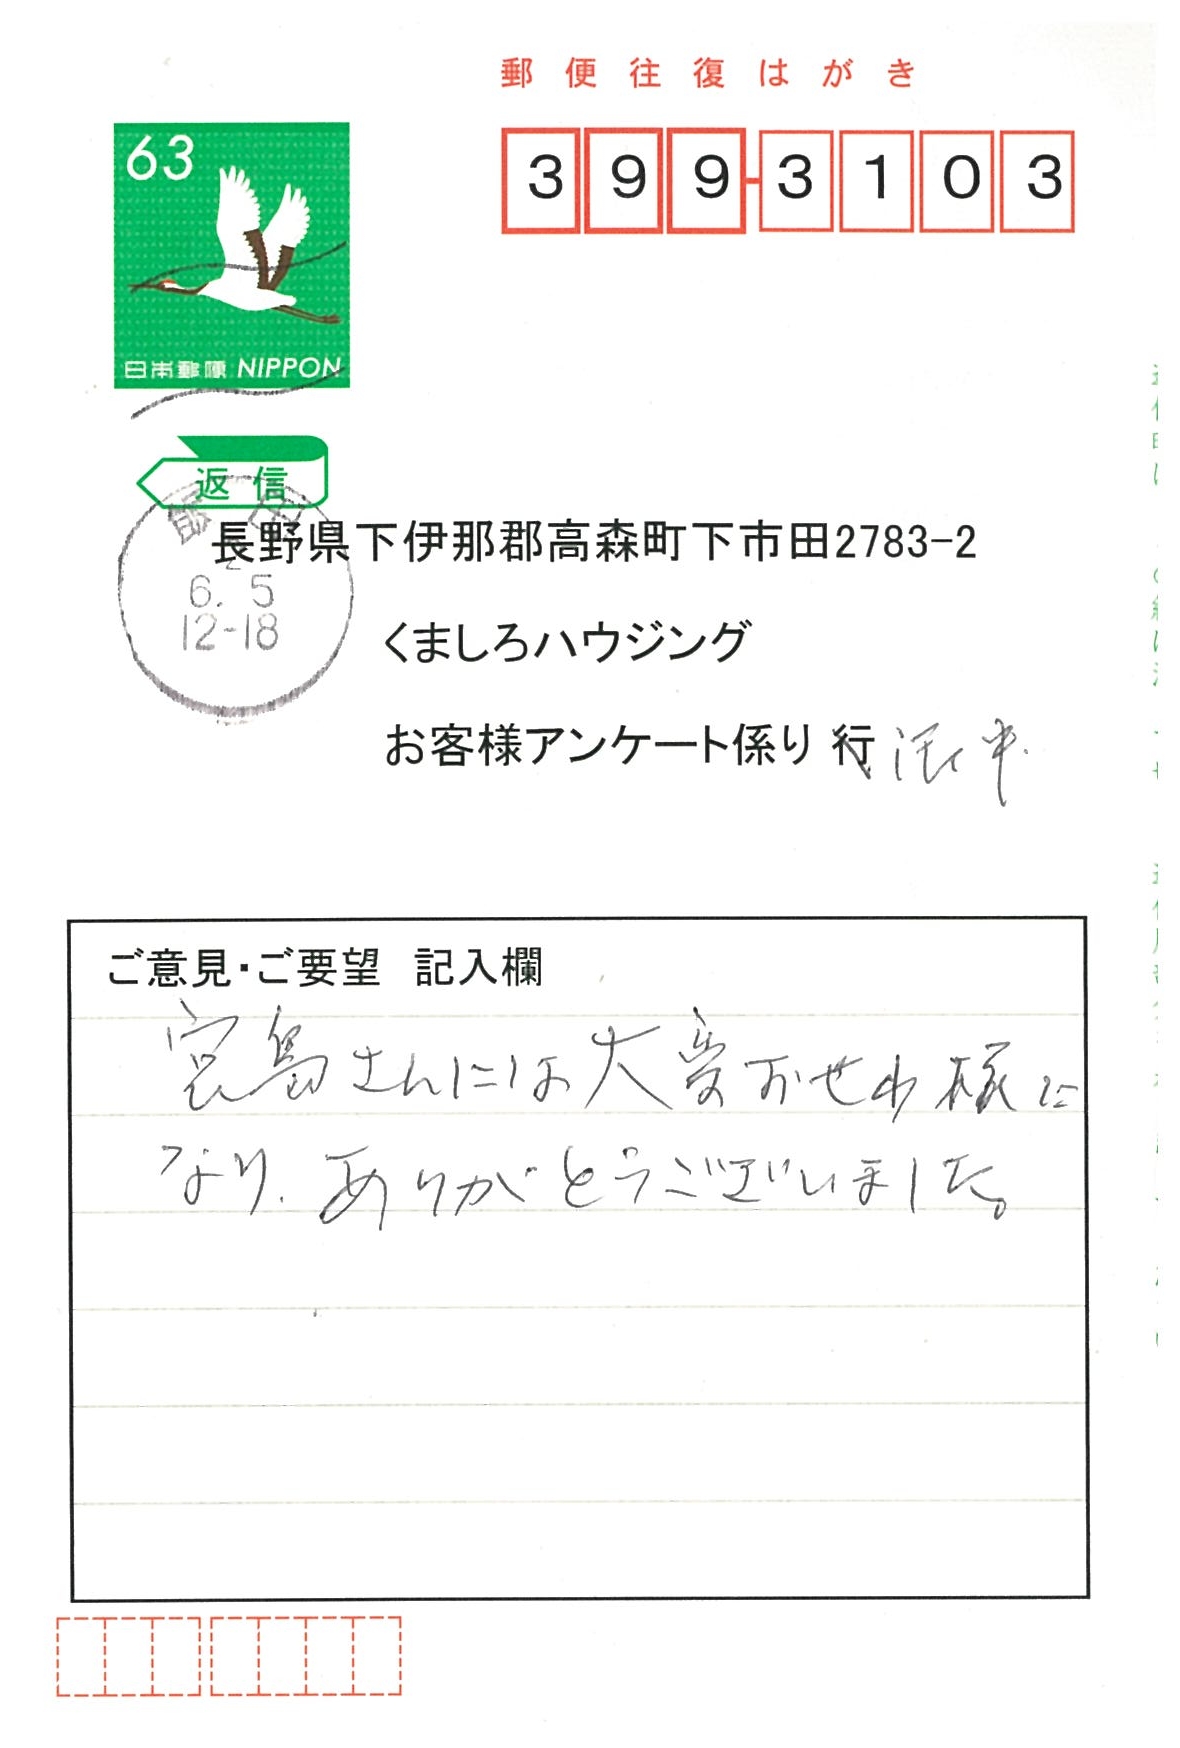 郵便往復はがき
63
399-3103
日本郵便 NIPPON
返信
飯田
6. 5
12-18
長野県下伊那郡高森町下市田2783-2
くましろハウジング
お客様アンケート係り 行 御中
ご意見・ご要望 記入欄
宮島さんには大変おせわ様に
なり、ありがとうございました。